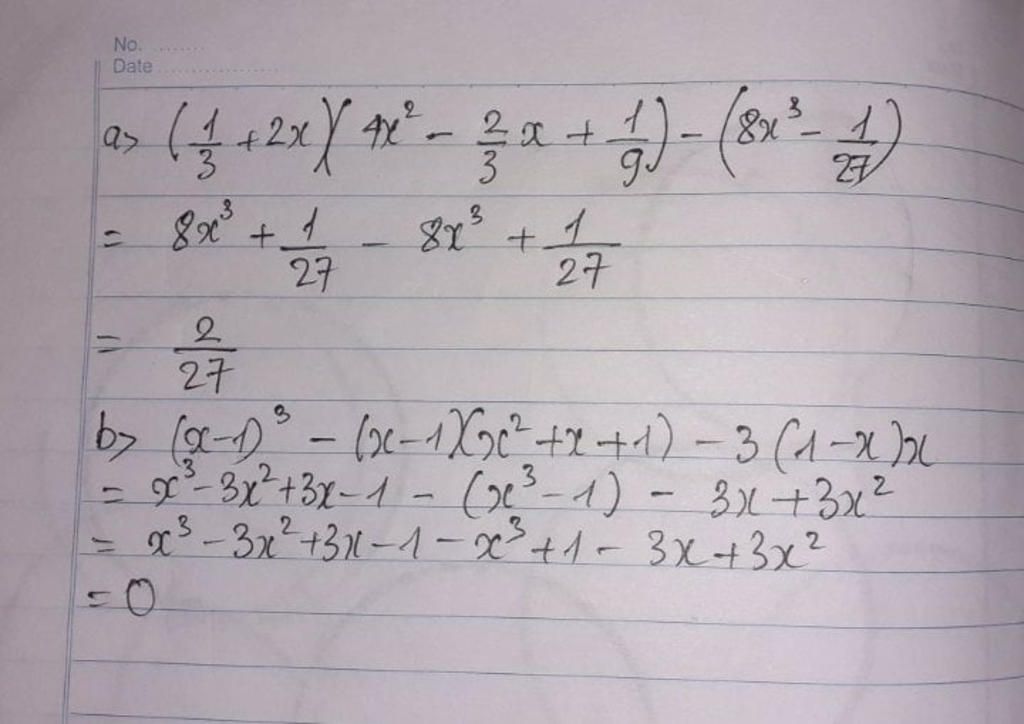 No. ........
Date ..................
a> (1/3 + 2x)(4x² - 2/3 x + 1/9) - (8x³ - 1/27)
= 8x³ + 1/27 - 8x³ + 1/27
= 2/27
b> (x-1)³ - (x-1)(x²+x+1) - 3(1-x)x
= x³-3x²+3x-1 - (x³-1) - 3x+3x²
= x³-3x²+3x-1-x³+1-3x+3x²
= 0